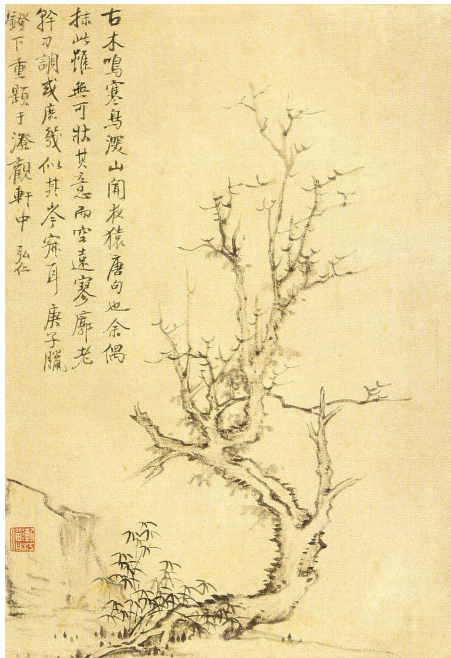 古木鳴寒鳥深山聞夜猿唐句也余偶
抹此雖無可狀其意而空遠寥廓老
幹刁調或庶幾似其岑寂耳庚子臘
鐙下重題于澄觀軒中 弘仁